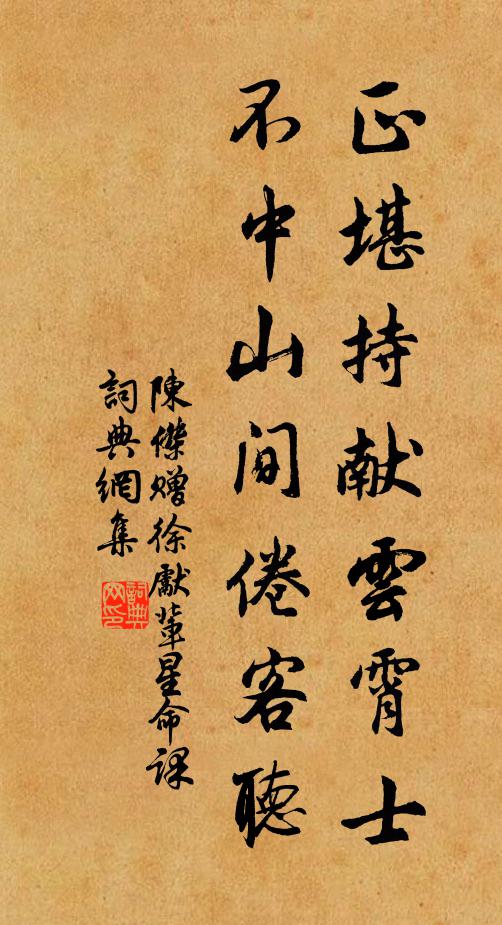 正堪持献雲霄士
不中山間倦客聽
陳傑贈徐獻葦星命課
詞典網集
詞典网印